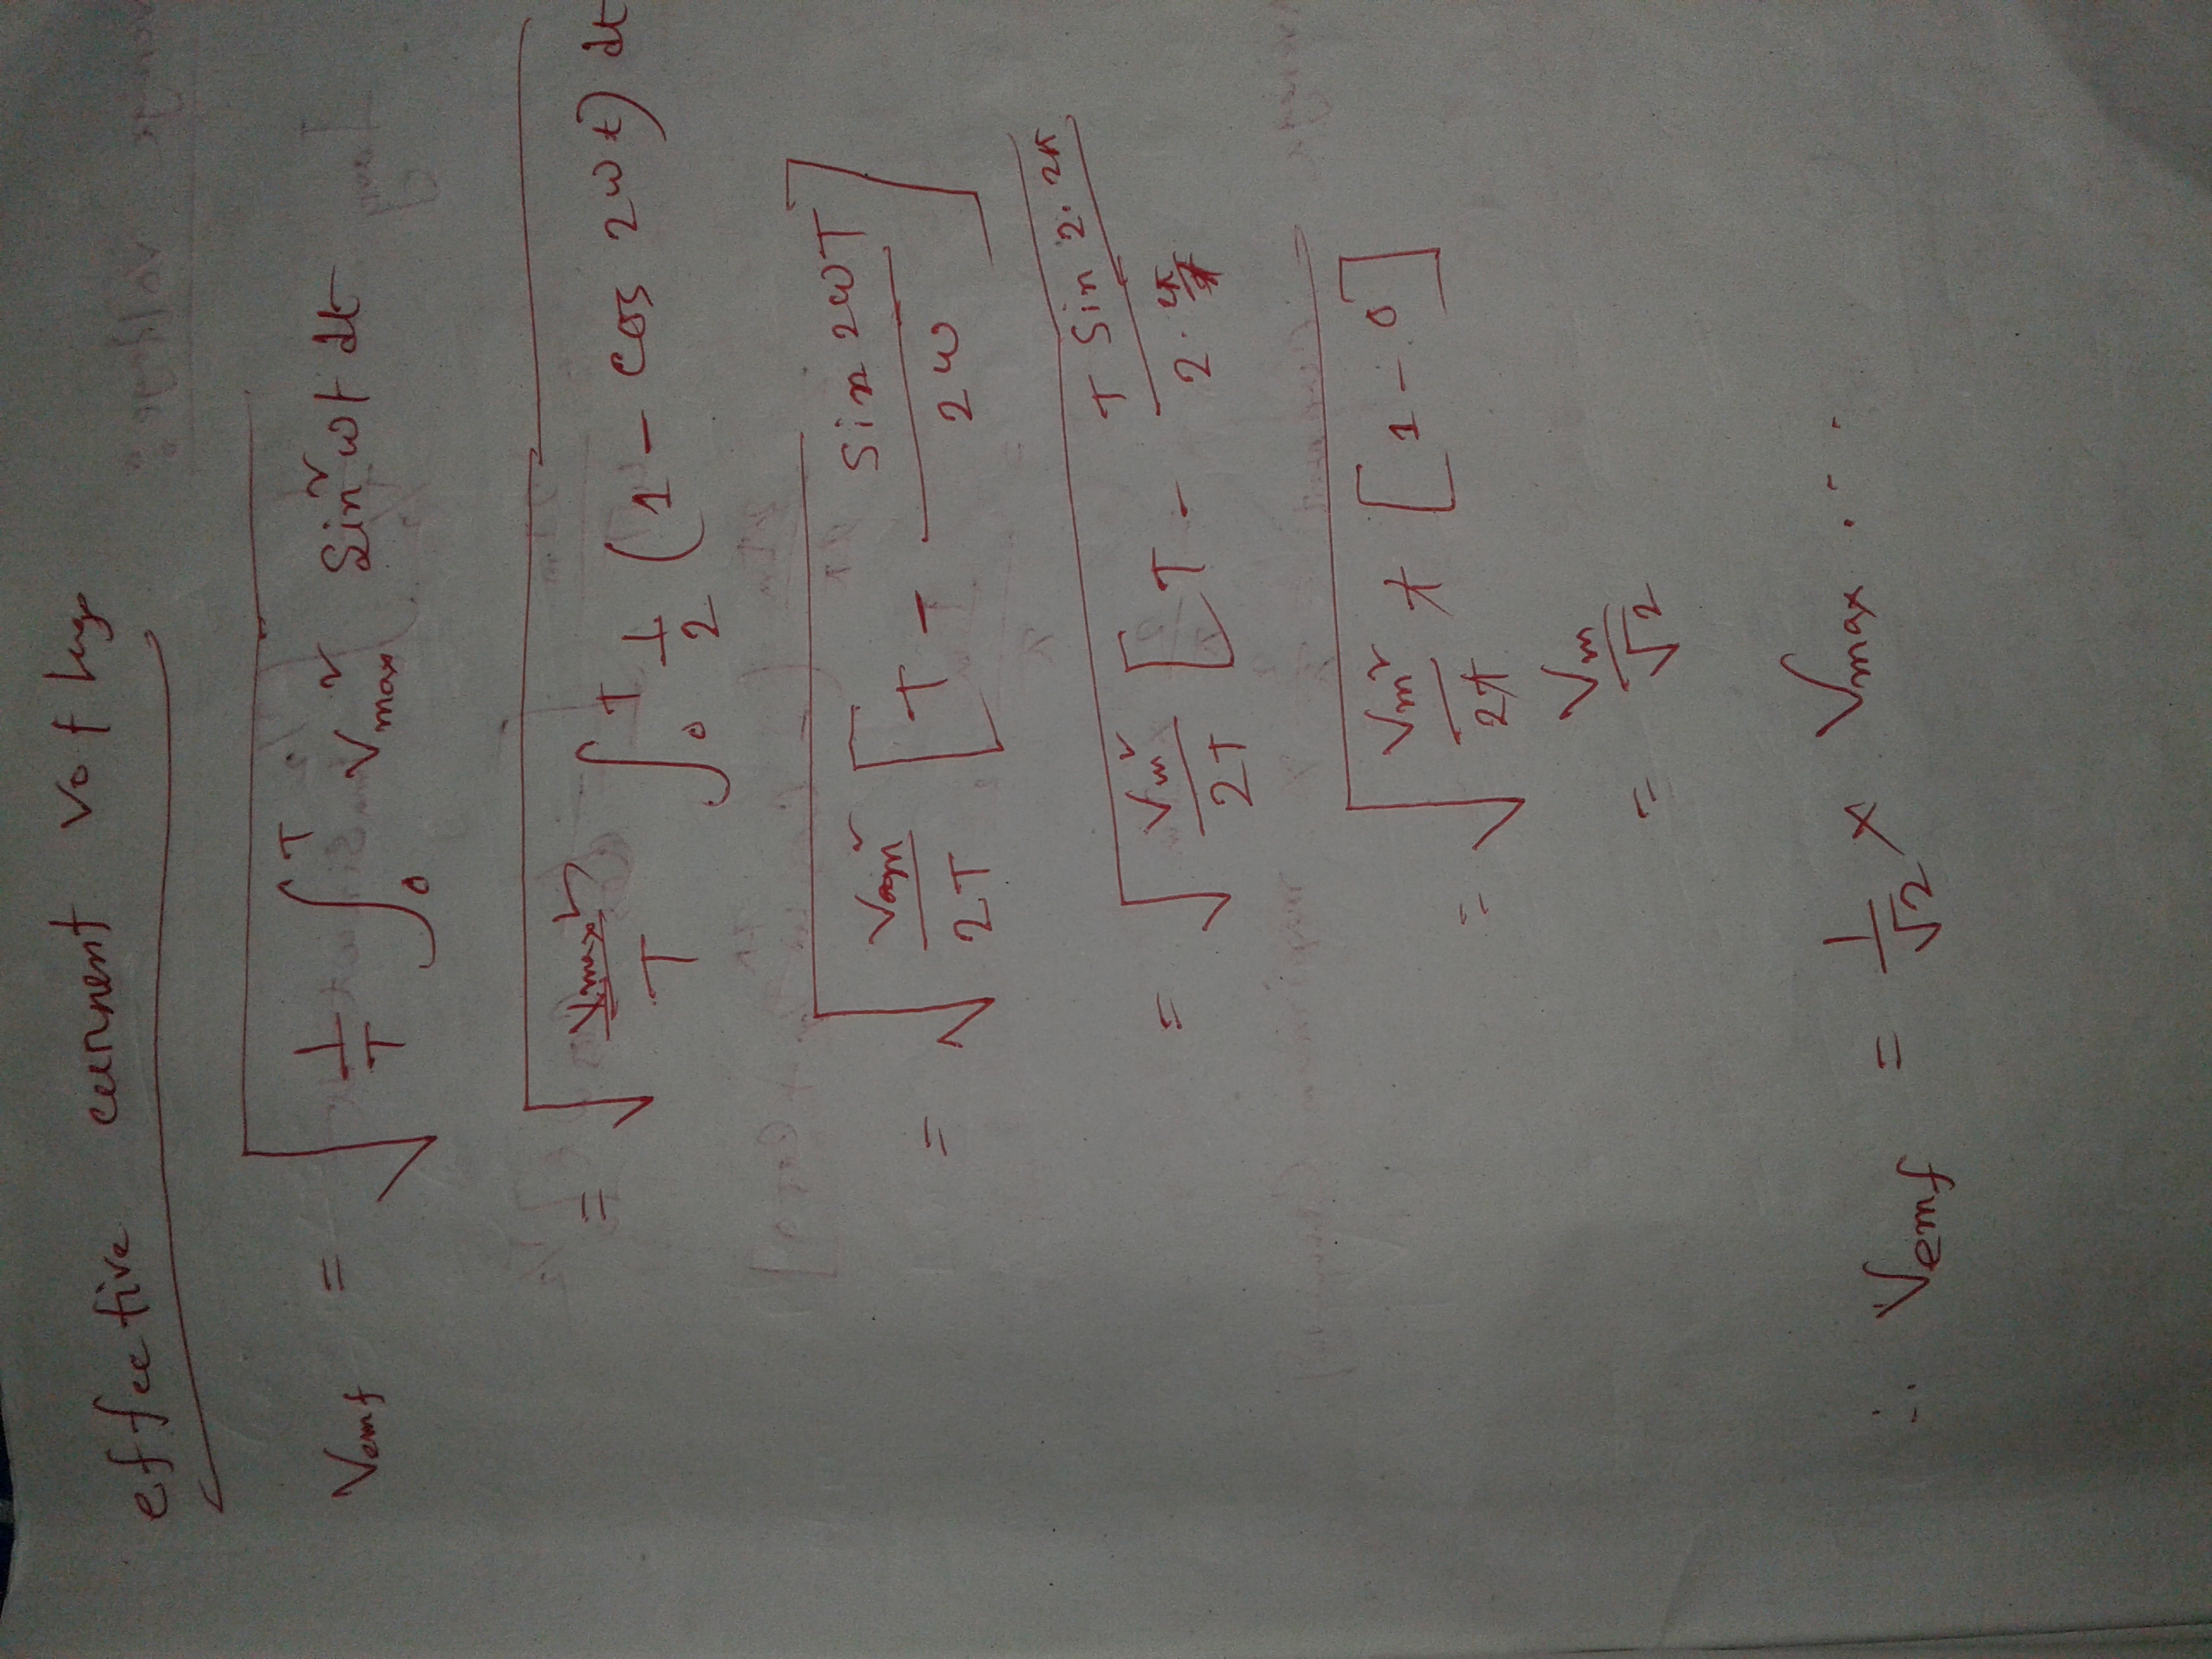 effective current voltage
Vemf = √(1/T ∫₀ᵀ V²max Sin²ωt dt)
= √(Vmax²/T ∫₀ᵀ 1/2 (1 - cos 2ωt) dt)
= √(Vm²/2T [T - Sin 2ωT/2ω])
= √(Vm²/2T [T - T Sin 2. 2π/2. 2π
= √(Vm²/2T T [1 - 0])
= Vm/√2
∴ Vemf = 1/√2 × Vmax ...